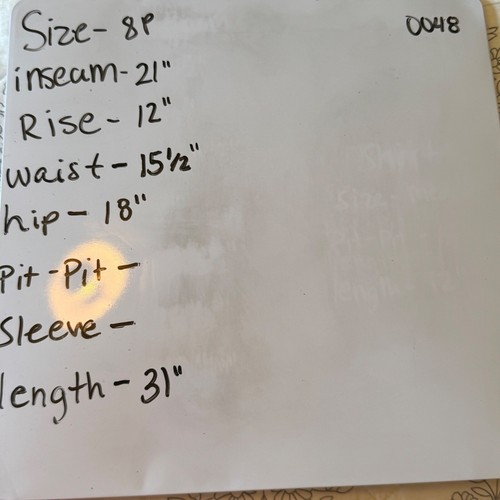 Size - 8P
0048
inseam - 21"
Rise - 12"
waist - 15 1/2"
hip - 18"
Pit - Pit -
Sleeve -
length - 31"